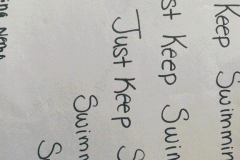 Keep Swimmin
st Keep Swim
Just Keep S
Swimm
S
ing Nemo